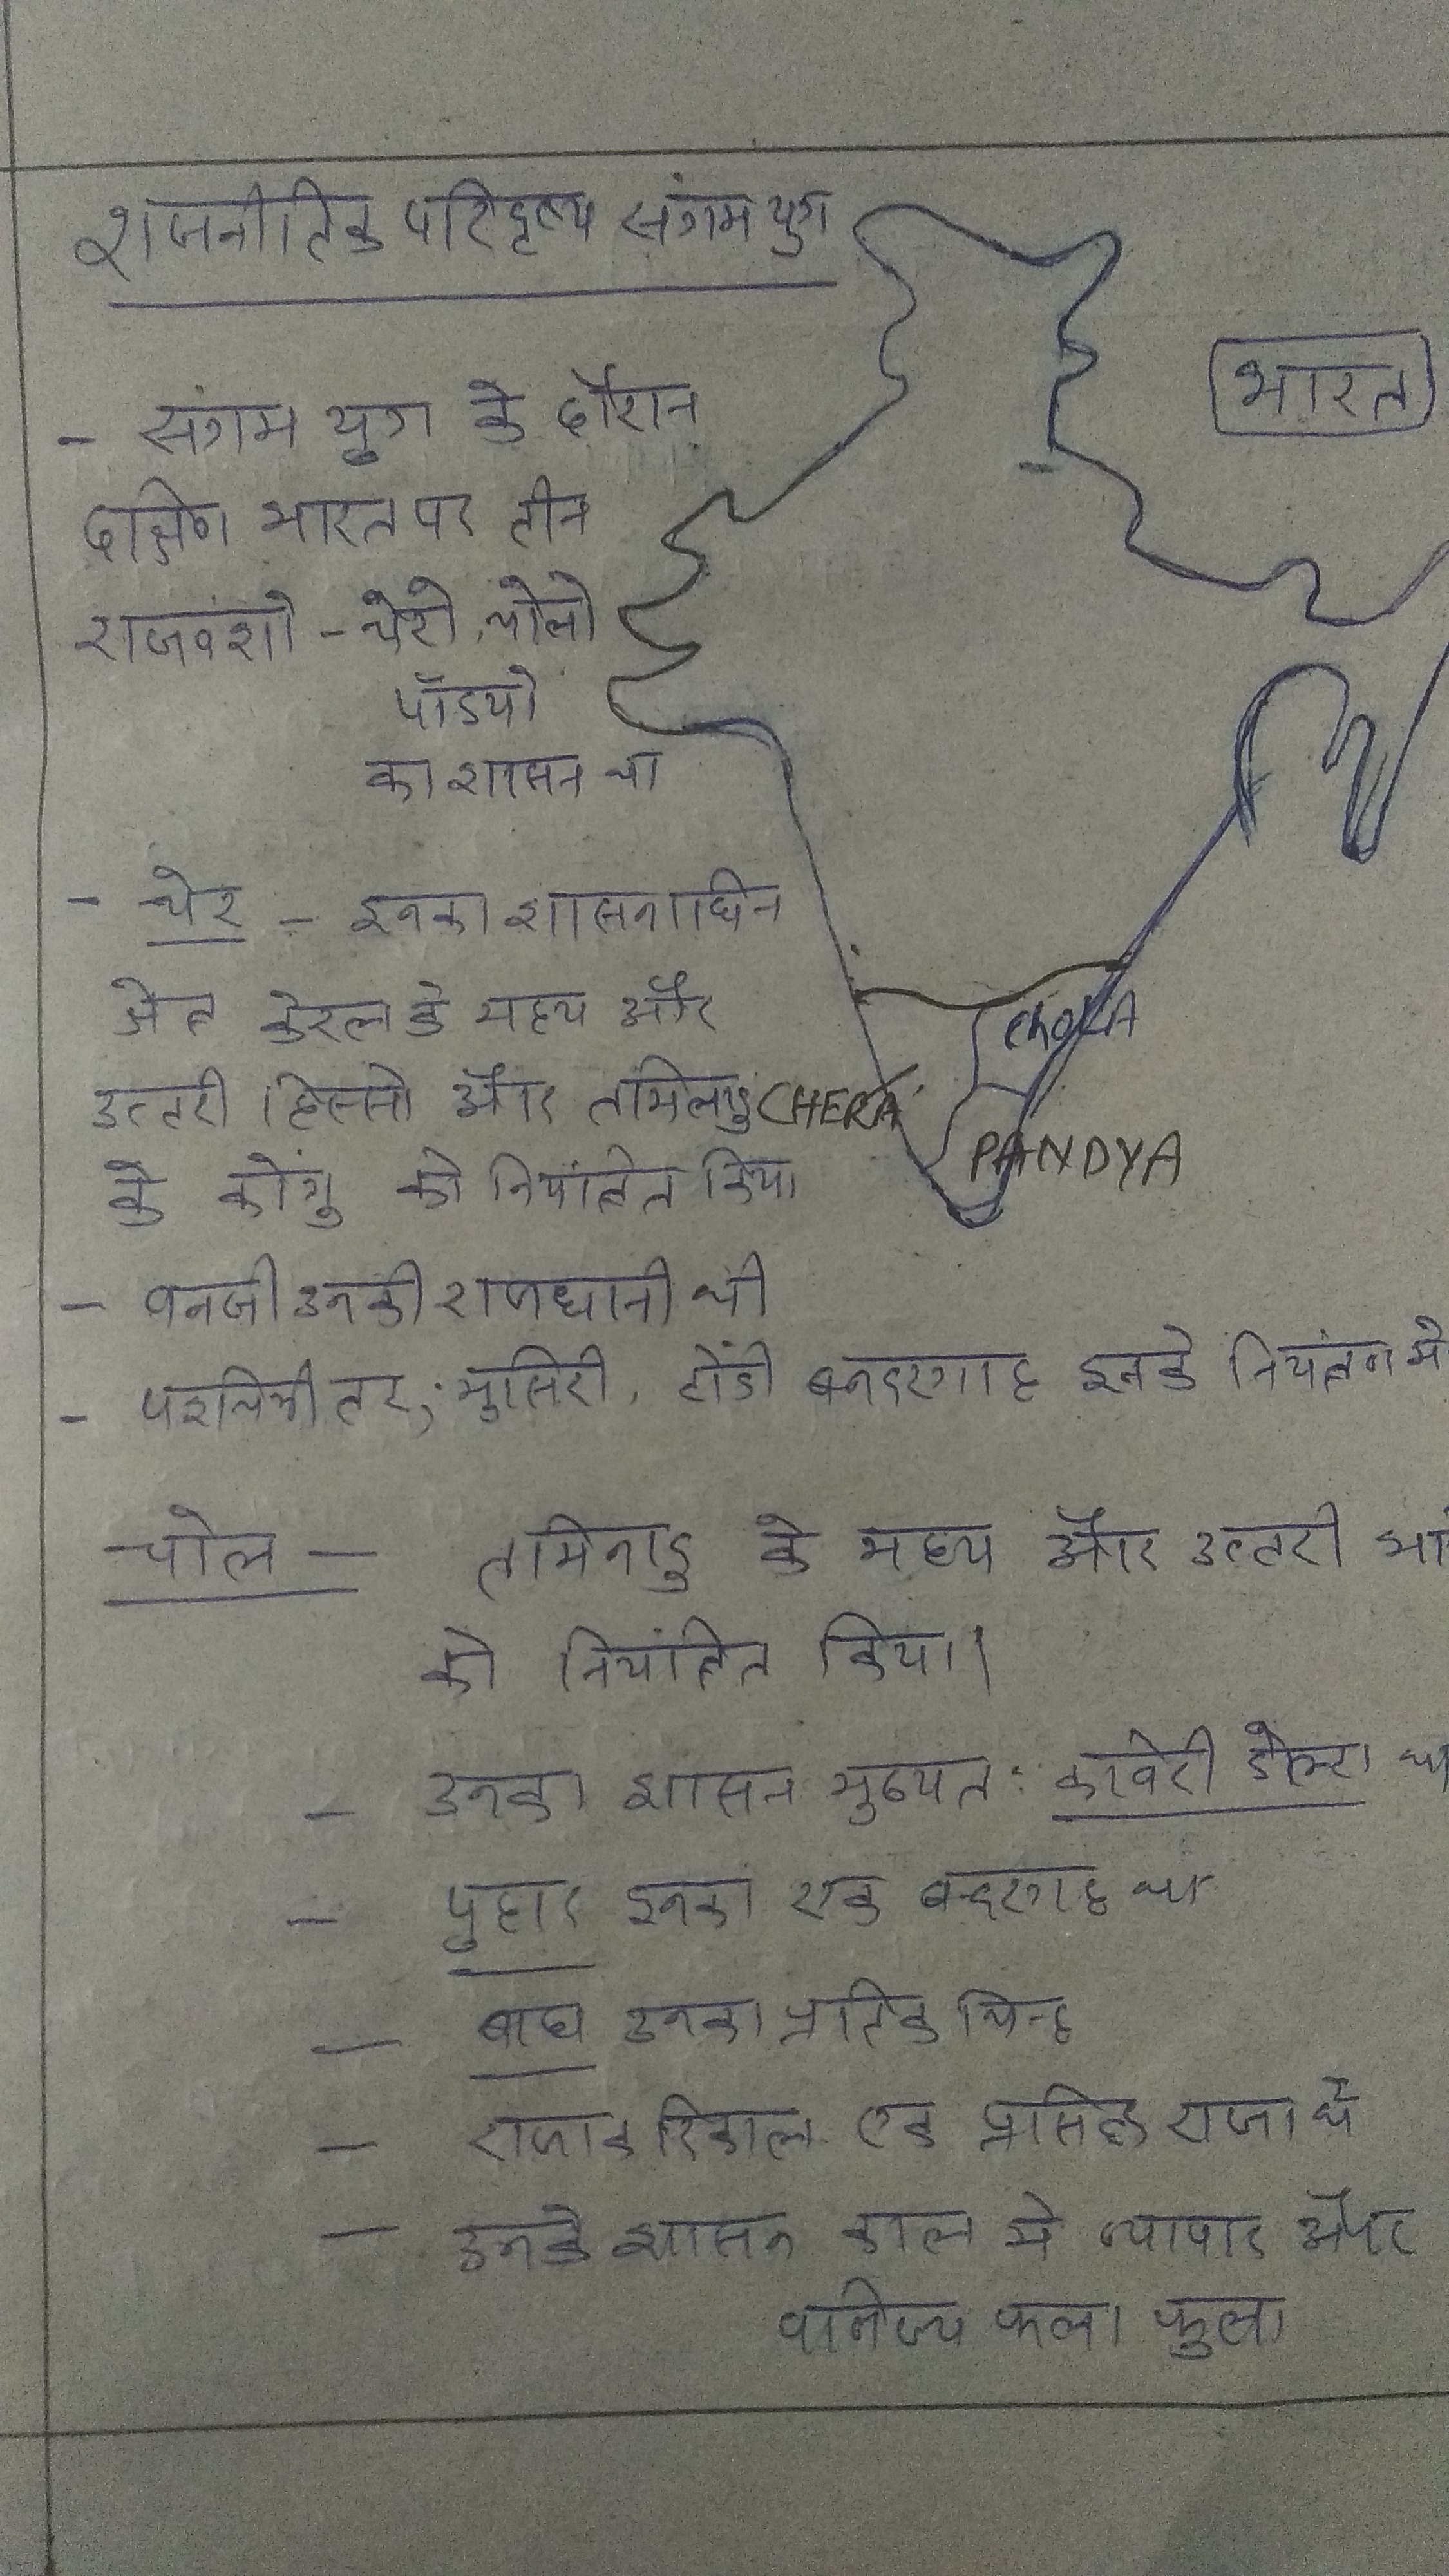 राजनीतिक परिदृश्य संगम युग
भारत
- संगम युग के दौरान
दक्षिण भारत पर तीन
राजवंशो - चेरो, चोलो
पांडयो
का शासन था
- चेर - इनका शासनाधिन
क्षेत्र केरल के मध्य और
उत्तरी हिस्सो और तमिलनाडु
के कोंगु को नियंत्रित किया
CHOLA
CHERA
PANDYA
- वनजी उनकी राजधानी थी
- पश्चिमी तट, मुसिरी, टोंडी बन्दरगाह इनके नियंत्रण मे
चोल - तमिनाडु के मध्य और उत्तरी
को नियंत्रित किया।
- उनका शासन मुख्यत: कावेरी डेल्टा था
- पुहार इनका एक बन्दरगाह था
- बाघ उनका प्रतिक चिन्ह
- राजा करिकाल एक प्रसिद्ध राजा थे
- उनके शासन काल मे व्यापार और
वानिज्य फला फुला